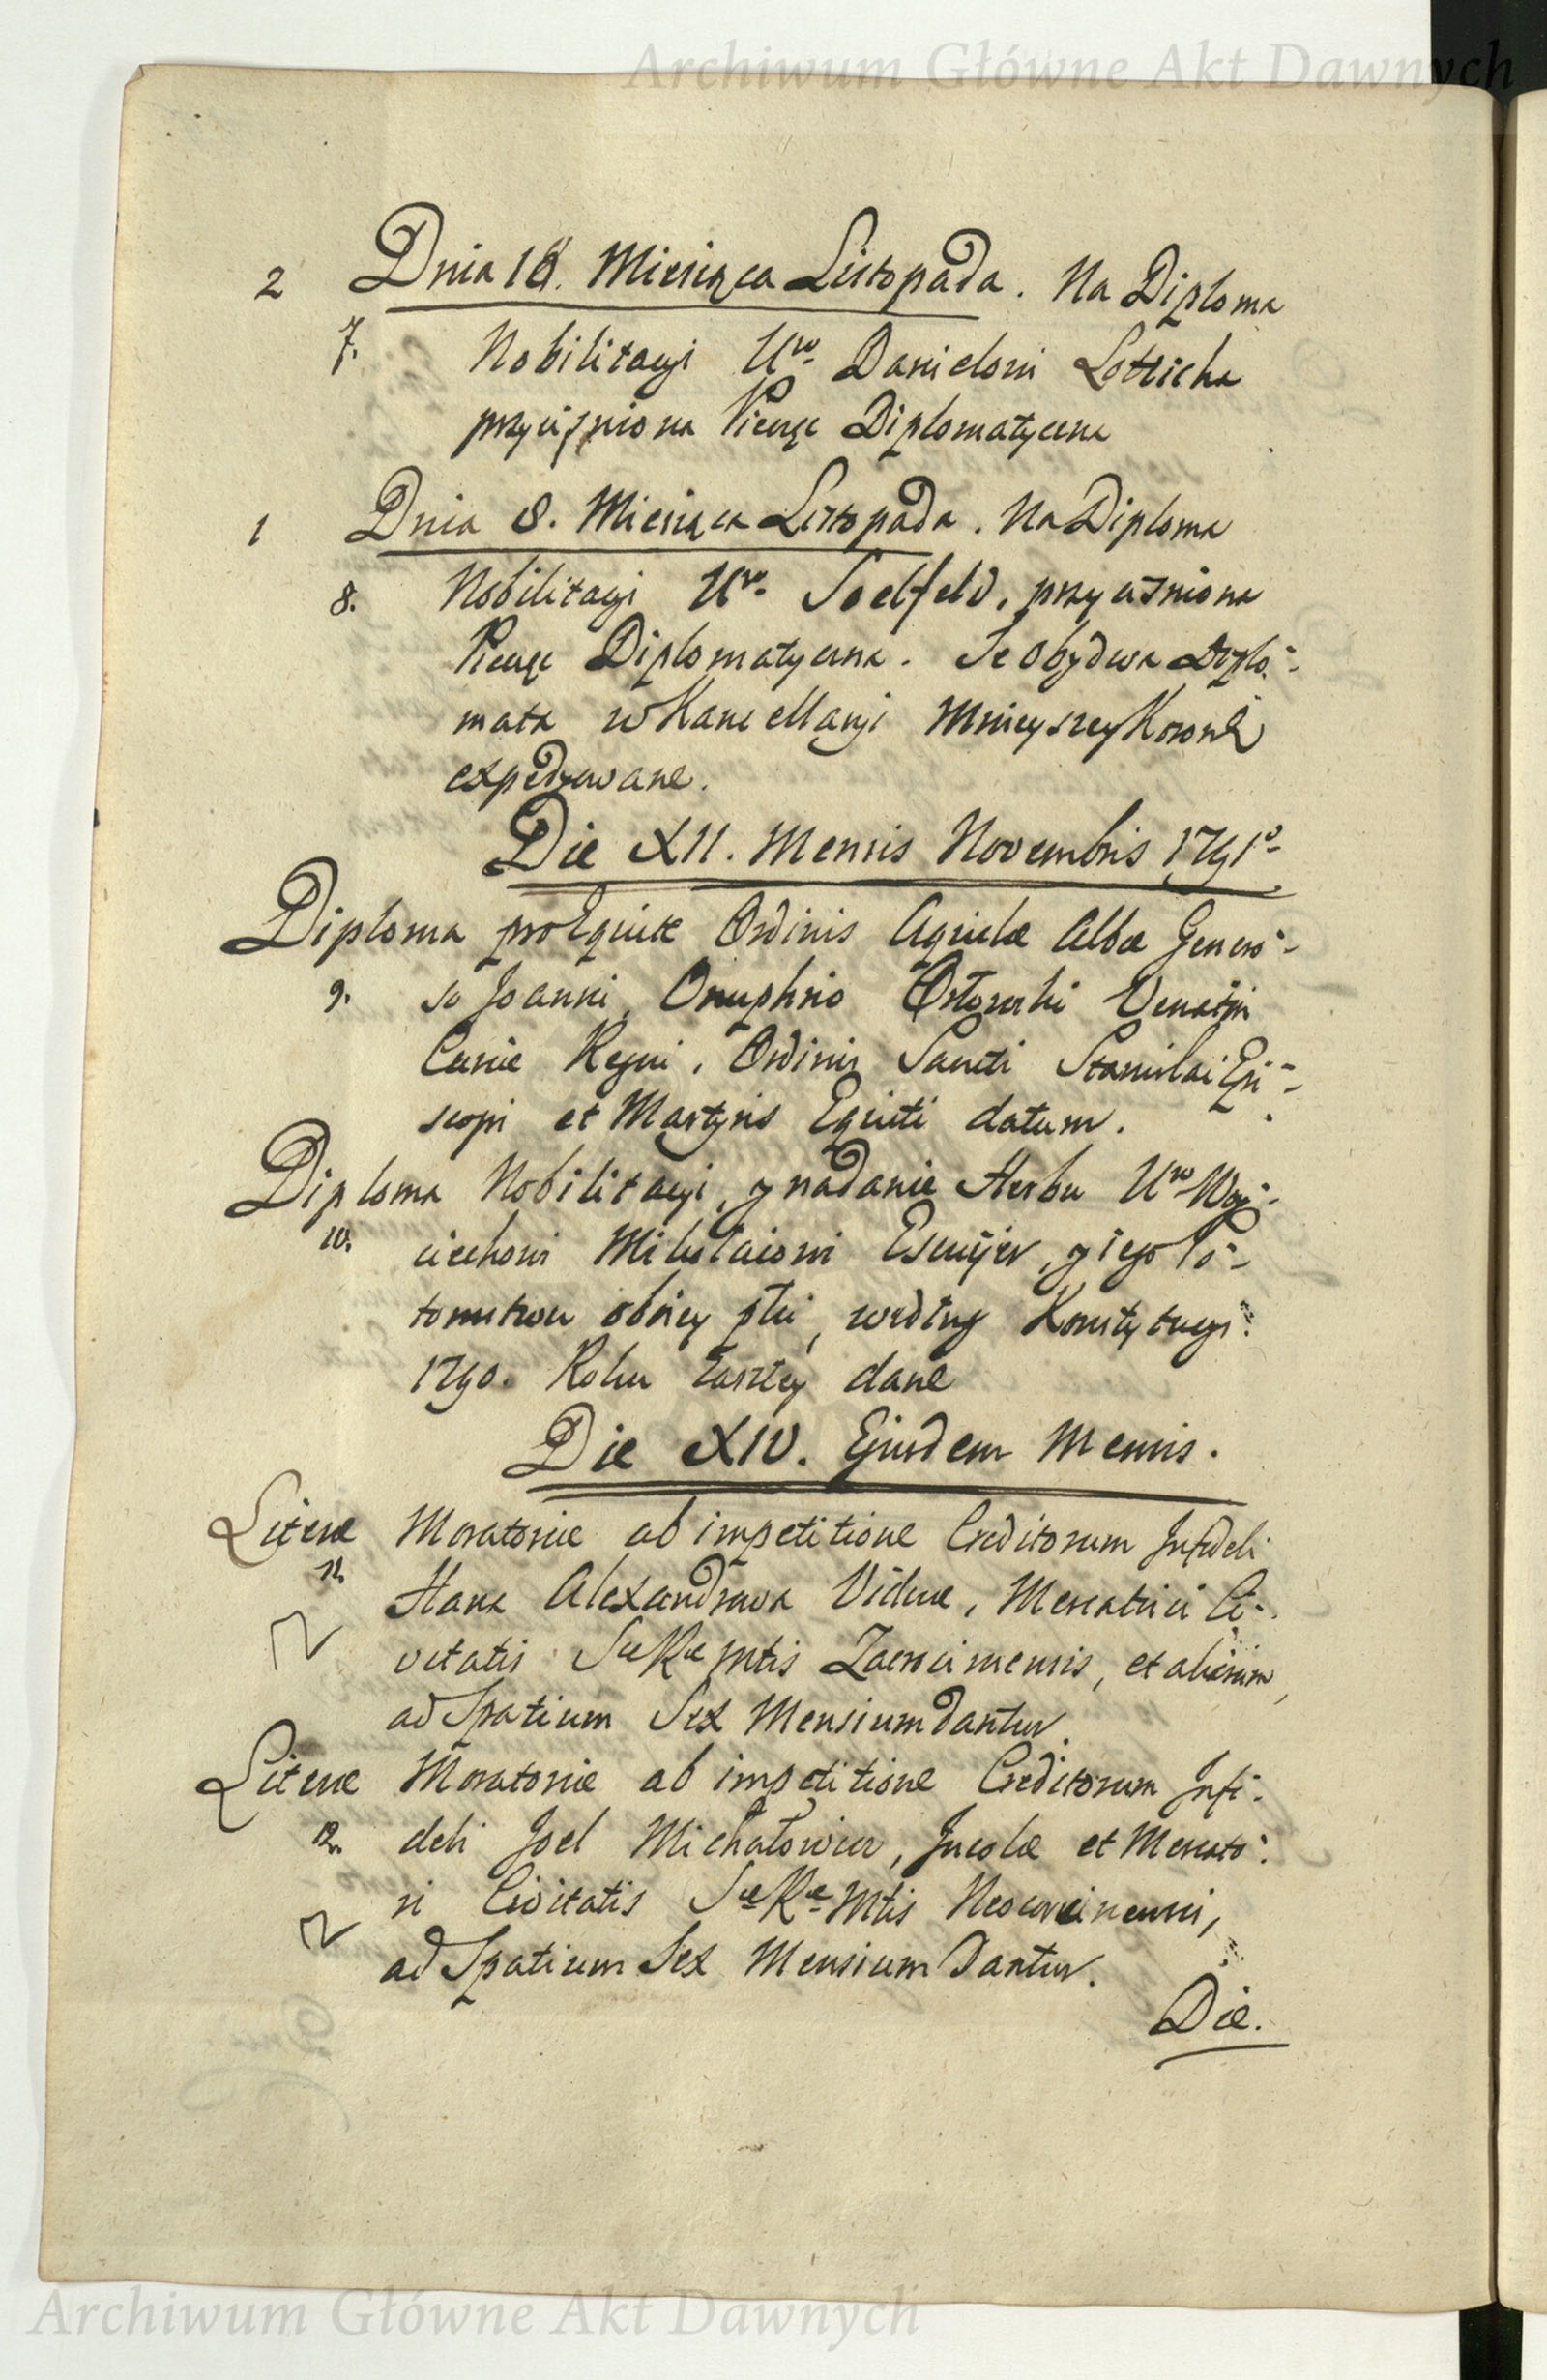 Archiwum Główne Akt Dawnych
2 Dnia 18. Miesiąca Listopada. Na Diploma
7. Nobilitacyi Uro Danielowi Lotticha
przyciśniona Pieczęc Diplomatyczna
1 Dnia 8. Miesiąca Listopada. Na Diploma
8. Nobilitacyi Uro. Soelfeld, przyciśniona
Pieczęc Diplomatyczna. Te obydwa Diplo-
mata w Kancellaryi Mnieyszey Koronē
expedyowane.
Die XII. Mensis Novembris 1791o
Diploma pro Equite Ordinis Aquilæ Albæ Genero-
9. so Joanni Onuphrio Venatori
Curiæ Regni, Ordinis Sancti Stanislai Epi-
scopi et Martyris Equiti datum.
Diploma Nobilitacyi, y nadanie Herbu Uro Woy-
10. ciechowi Mikołaiowi y iego Po-
tomstwu oboiey płci, według Konstytucyi
1790. Roku zaszłey dane
Die XIV. Ejusdem Mensis.
Literæ Moratoriæ ab impetitione Creditorum Infideli
11. Hana Alexandrowa Viduæ, Mercatrici Ci-
vitatis Sæ Ræ Mtis Zacrocimensis, et aliorum,
ad Spatium Sex Mensium dantur.
Literæ Moratoriæ ab impetitione Creditorum Infi-
12. deli Joel Michałowicz, Incolæ et Mercato-
ri Civitatis Sæ Ræ Mtis
ad Spatium Sex Mensium Dantur.
Die.
Archiwum Główne Akt Dawnych